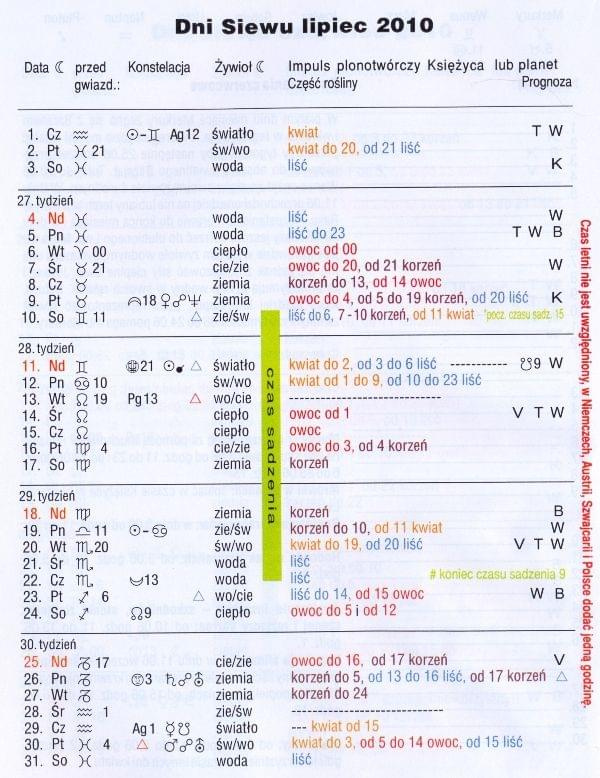 Dni Siewu lipiec 2010
Data ☾ przed gwiazd.: Konstelacja Żywioł ☾ Impuls plonotwórczy Księżyca lub planet
Część rośliny Prognoza
1. Cz ♒ ☉-♊ Ag12 światło kwiat T W
2. Pt ♓ 21 św/wo kwiat do 20, od 21 liść
3. So ♓ woda liść K
27. tydzień
4. Nd ♓ woda liść W
5. Pn ♓ woda liść do 23 T W B
6. Wt ♈ 00 ciepło owoc od 00
7. Śr ♉ 21 cie/zie owoc do 20, od 21 korzeń W
8. Cz ♉ ziemia korzeń do 13, od 14 owoc
9. Pt ♉ 18 ♀☍♆ ziemia owoc do 4, od 5 do 19 korzeń, od 20 liść K
10. So ♊ 11 △ zie/św liść do 6, 7-10 korzeń, od 11 kwiat *pocz. czasu sadz. 15
28. tydzień
11. Nd ♊ 21 △ światło kwiat do 2, od 3 do 6 liść ----------- ☋9 W
12. Pn ♋ 10 św/wo kwiat od 1 do 9, od 10 do 23 liść
13. Wt ♌ 19 Pg13 △ wo/cie ------------------------
14. Śr ♌ ciepło owoc od 1 V T W
15. Cz ♌ ciepło owoc
16. Pt ♍ 4 cie/zie owoc do 3, od 4 korzeń
17. So ♍ ziemia korzeń
czas sadzenia
29. tydzień
18. Nd ♍ ziemia korzeń B
19. Pn ♎ 11 ☉-♋ zie/św korzeń do 10, od 11 kwiat W
20. Wt ♏ 20 św/wo kwiat do 19, od 20 liść V T W
21. Śr ♏ woda liść
22. Cz ♏ 13 woda liść # koniec czasu sadzenia 9
23. Pt ♐ 6 △ wo/cie liść do 14, od 15 owoc W B
24. So ♐ ☊9 ciepło owoc do 5 i od 12
30. tydzień
25. Nd ♑ 17 cie/zie owoc do 16, od 17 korzeń V
26. Pn ♑ 3 ♄☍⛢ ziemia korzeń do 5, od 13 do 16 liść, od 17 korzeń △
27. Wt ♑ ziemia korzeń do 24
28. Śr ♒ 1 zie/św
29. Cz ♒ Ag1 ☿☋ światło --- kwiat od 15
30. Pt ♓ 4 △ ♂☍⛢ św/wo kwiat do 3, od 5 do 14 owoc, od 15 liść
31. So ♓ woda liść
Czas letni nie jest uwzględniony, w Niemczech, Austrii, Szwajcarii i Polsce dodać jedną godzinę.